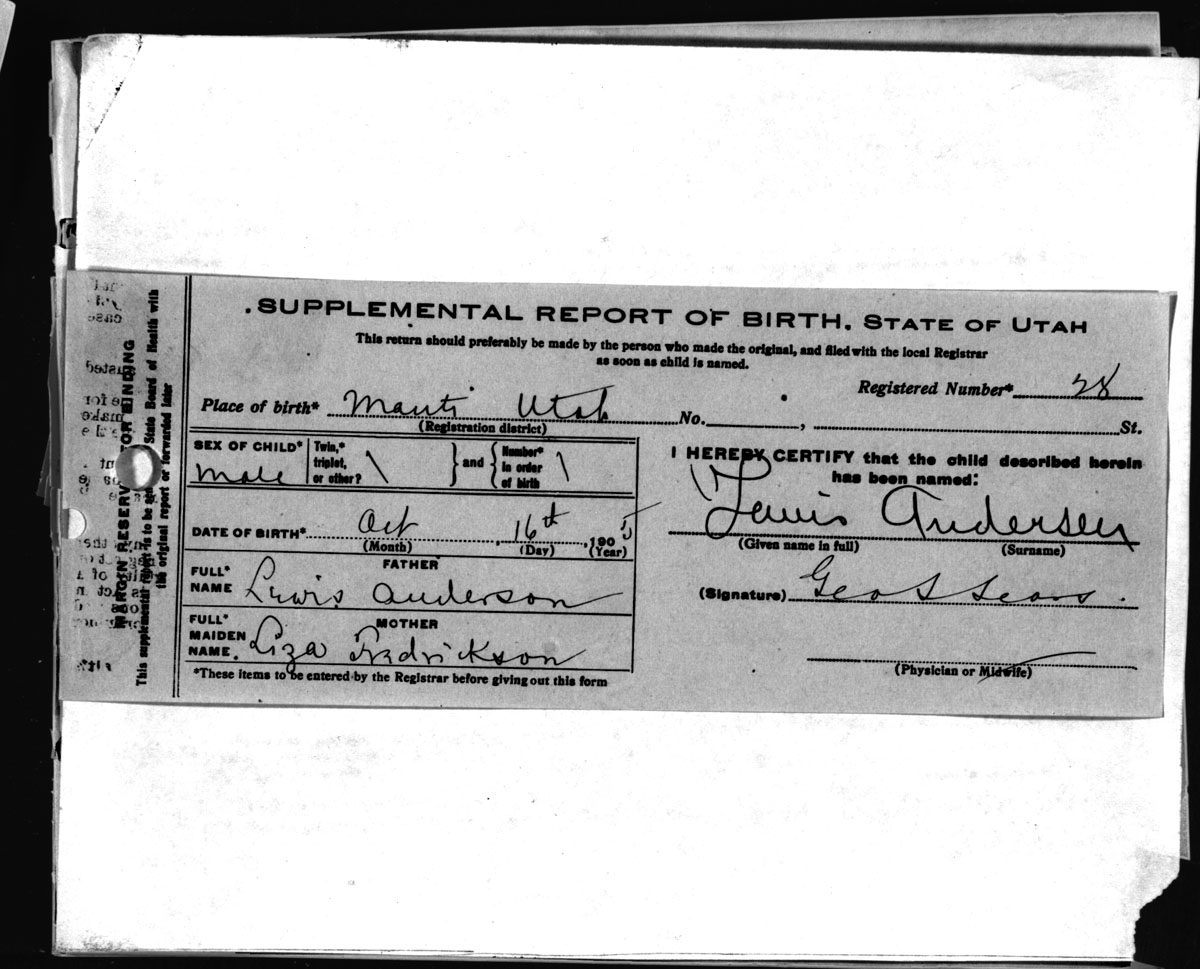 SUPPLEMENTAL REPORT OF BIRTH. STATE OF UTAH
This return should preferably be made by the person who made the original, and filed with the local Registrar
as soon as child is named.
Registered Number* 28
Place of birth* Manti Utah No. , St.
(Registration district)
SEX OF CHILD* Male
Twin,* triplet, or other? \ } and { Number* in order of birth \
DATE OF BIRTH* Oct 16th, 1905
(Month) (Day) (Year)
FATHER
FULL* NAME Lewis Anderson
MOTHER
FULL* MAIDEN NAME. Liza Fredrickson
*These items to be entered by the Registrar before giving out this form
I HEREBY CERTIFY that the child described herein
has been named:
Lewis Andersen
(Given name in full) (Surname)
(Signature) Geo S Sears.
(Physician or Midwife)
MARGIN RESERVED FOR BINDING
This supplemental report is to be sent State Board of Health with
the original report or forwarded later